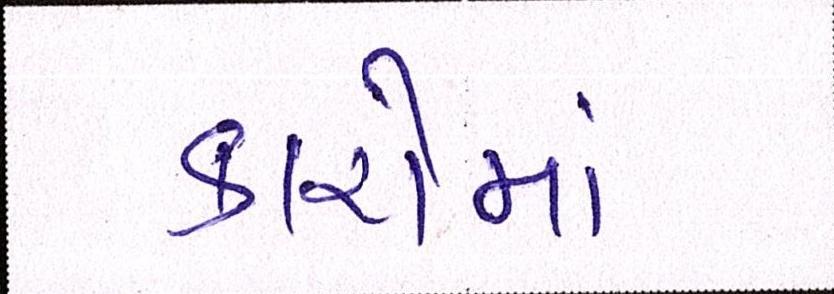 કારોમાં